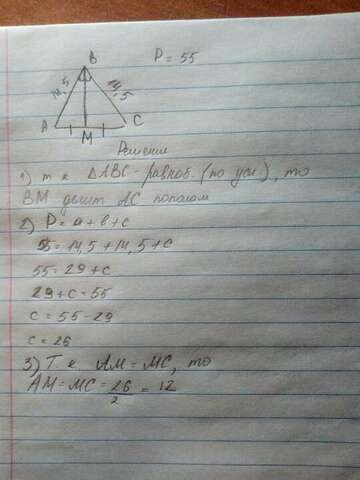 B
P = 55
14,5
14,5
A
M
C
Решение
1) т к ΔABC - равноб (по усл), то
BM делит AC пополам
2) P = a + b + c
55 = 14,5 + 14,5 + c
55 = 29 + c
29 + c = 55
c = 55 - 29
c = 26
3) Т к AM = MC, то
AM = MC = 26/2 = 12